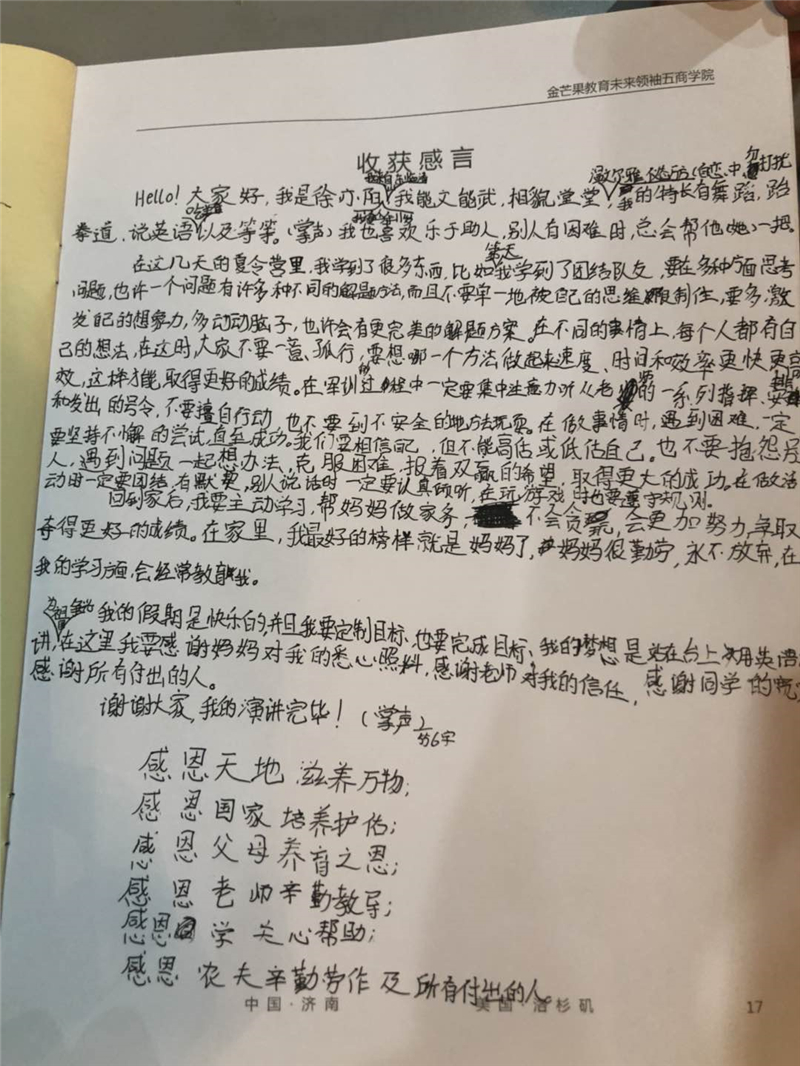 金芒果教育未来领袖五商学院
收获感言
Hello！大家好，我是徐亦阳，我能文能武，相貌堂堂，我的特长有舞蹈，跆
拳道，说英语以及等等。（掌声）我也喜欢乐于助人，别人有困难时，总会帮他（她）一把。
在这几天的夏令营里，我学到了很多东西，比如我学到了团结队友，要在多种方面思考
问题，也许一个问题有许多种不同的解题方法，而且不要单一地被自己的思维限制住，要多激
发自己的想象力，多动动脑子，也许会有更完美的解题方案。在不同的事情上，每个人都有自
己的想法，在这时，大家不要一意孤行，要想哪一个方法做起来速度、时间和效率更快更高
效，这样才能取得更好的成绩。在军训过程中一定要集中注意力听从老师的一系列指挥、
和发出的号令，不要擅自行动，也不要到不安全的地方去玩耍。在做事情时，遇到困难，一定
要坚持不懈的尝试，直至成功。我们要相信自己，但不能高估或低估自己。也不要抱怨别
人，遇到问题一起想办法，克服困难，报着双赢的希望，取得更大的成功。在做活
动时一定要团结，有默契，别人说话时一定要认真倾听，在玩游戏时也要遵守规则。
回到家后，我要主动学习，帮妈妈做家务，不会贪玩，会更加努力，争取
夺得更好的成绩。在家里，我最好的榜样就是妈妈了，妈妈很勤劳，永不放弃，在
我的学习方面，会经常教育我。
我的假期是快乐的，并且我要定制目标，也要完成目标，我的梦想是站在台上用英语
讲，在这里我要感谢妈妈对我的悉心照料，感谢老师对我的信任，感谢同学的
感谢所有付出的人。
谢谢大家，我的演讲完毕！（掌声）
556字
感恩天地滋养万物；
感恩国家培养护佑；
感恩父母养育之恩；
感恩老师辛勤教导；
感恩同学关心帮助；
感恩农夫辛勤劳作及所有付出的人。
中国·济南 美国·洛杉矶 17